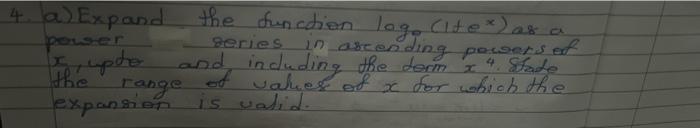 4. a) Expand the function logₑ (1+eˣ) as a
power series in ascending powers of
x, upto and including the term x⁴. State
the range of values of x for which the
expansion is valid.